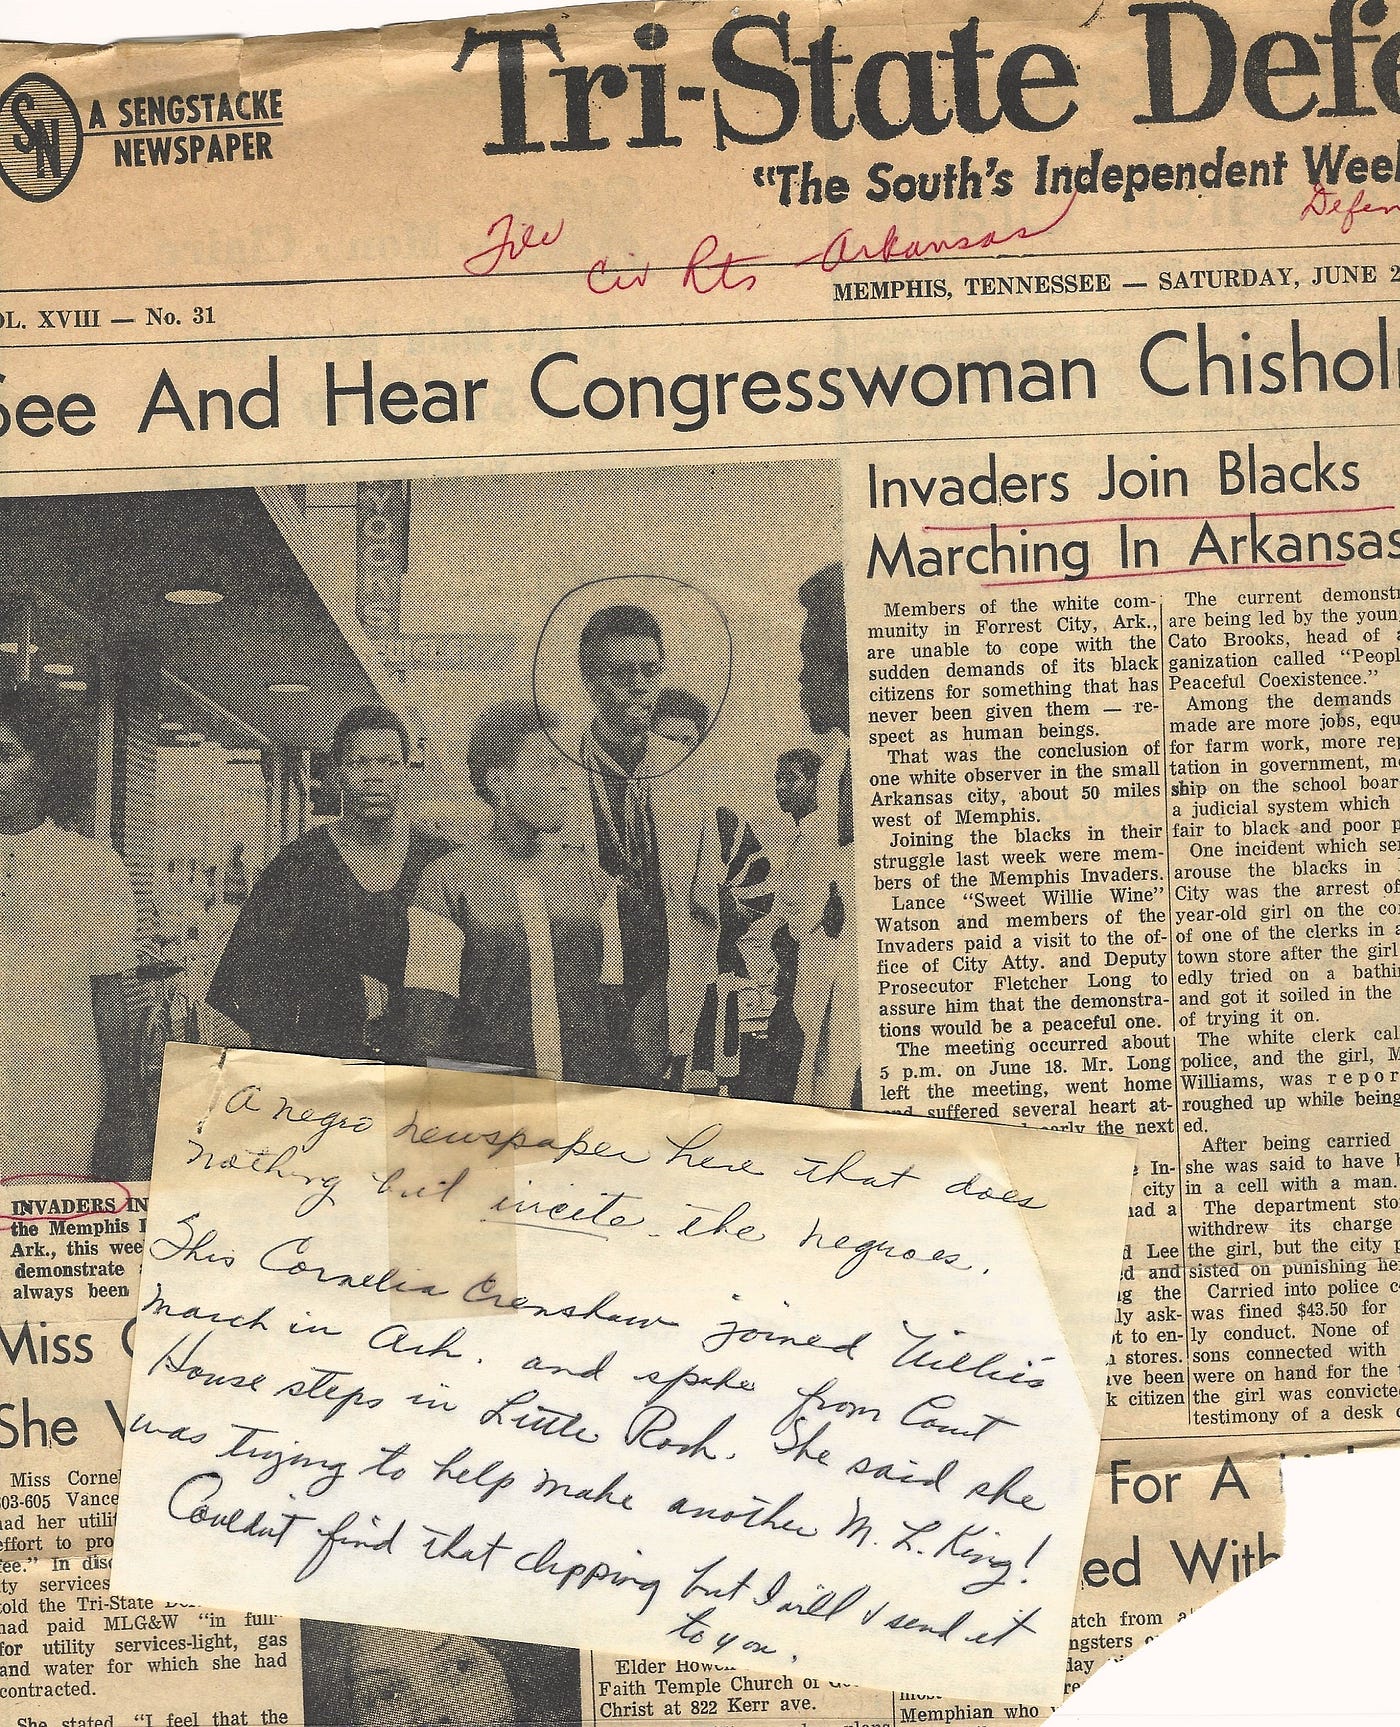 SN
A SENGSTACKE
NEWSPAPER
Tri-State Defe
"The South's Independent Week
File
Civ Rts - Arkansas
Defen
OL. XVIII — No. 31
MEMPHIS, TENNESSEE — SATURDAY, JUNE 2
See And Hear Congresswoman Chishol
Invaders Join Blacks
Marching In Arkansas
Members of the white com-
munity in Forrest City, Ark.,
are unable to cope with the
sudden demands of its black
citizens for something that has
never been given them — re-
spect as human beings.
That was the conclusion of
one white observer in the small
Arkansas city, about 50 miles
west of Memphis.
Joining the blacks in their
struggle last week were mem-
bers of the Memphis Invaders.
Lance "Sweet Willie Wine"
Watson and members of the
Invaders paid a visit to the of-
fice of City Atty. and Deputy
Prosecutor Fletcher Long to
assure him that the demonstra-
tions would be a peaceful one.
The meeting occurred about
5 p.m. on June 18. Mr. Long
left the meeting, went home
and suffered several heart at-
early the next
In-
city
had a
d Lee
ed and
g the
ly ask-
t to en-
n stores.
ave been
k citizen
The current demonst
are being led by the youn
Cato Brooks, head of a
ganization called "Peopl
Peaceful Coexistence."
Among the demands
made are more jobs, equ
for farm work, more rep
tation in government, me
ship on the school boar
a judicial system which
fair to black and poor p
One incident which se
arouse the blacks in
City was the arrest of
year-old girl on the co
of one of the clerks in a
town store after the girl
edly tried on a bathi
and got it soiled in the
of trying it on.
The white clerk cal
police, and the girl, M
Williams, was repor
roughed up while being
ed.
After being carried
she was said to have b
in a cell with a man.
The department sto
withdrew its charge
the girl, but the city p
sisted on punishing he
Carried into police c
was fined $43.50 for
ly conduct. None of
sons connected with
were on hand for the
the girl was convicte
testimony of a desk
INVADERS IN
the Memphis I
Ark., this wee
demonstrate
always been
A negro newspaper here that does
nothing but incite the negroes.
This Cornelia Crenshaw joined Willie's
march in Ark. and spoke from Court
House steps in Little Rock. She said she
was trying to help make another M. L. King!
Couldn't find that clipping but I will send it
to you.
Miss C
She
Miss Corne
603-605 Vance
had her utili
effort to pro
fee." In disc
ty services
told the Tri-State
had paid MLG&W "in full
for utility services-light, gas
and water for which she had
contracted.
She stated, "I feel that the
Elder Howe
Faith Temple Church of
Christ at 822 Kerr ave.
For A
ed With
atch from a
ngsters o
day
Memphian who